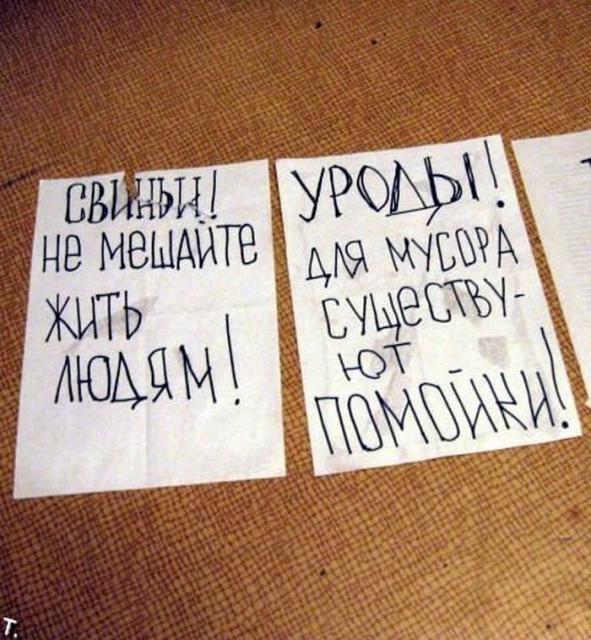 СВИНЬИ!
НЕ МЕШАЙТЕ
ЖИТЬ
ЛЮДЯМ!
УРОДЫ!
ДЛЯ МУСОРА
СУЩЕСТВУ-
ЮТ
ПОМОЙКИ!
Т.